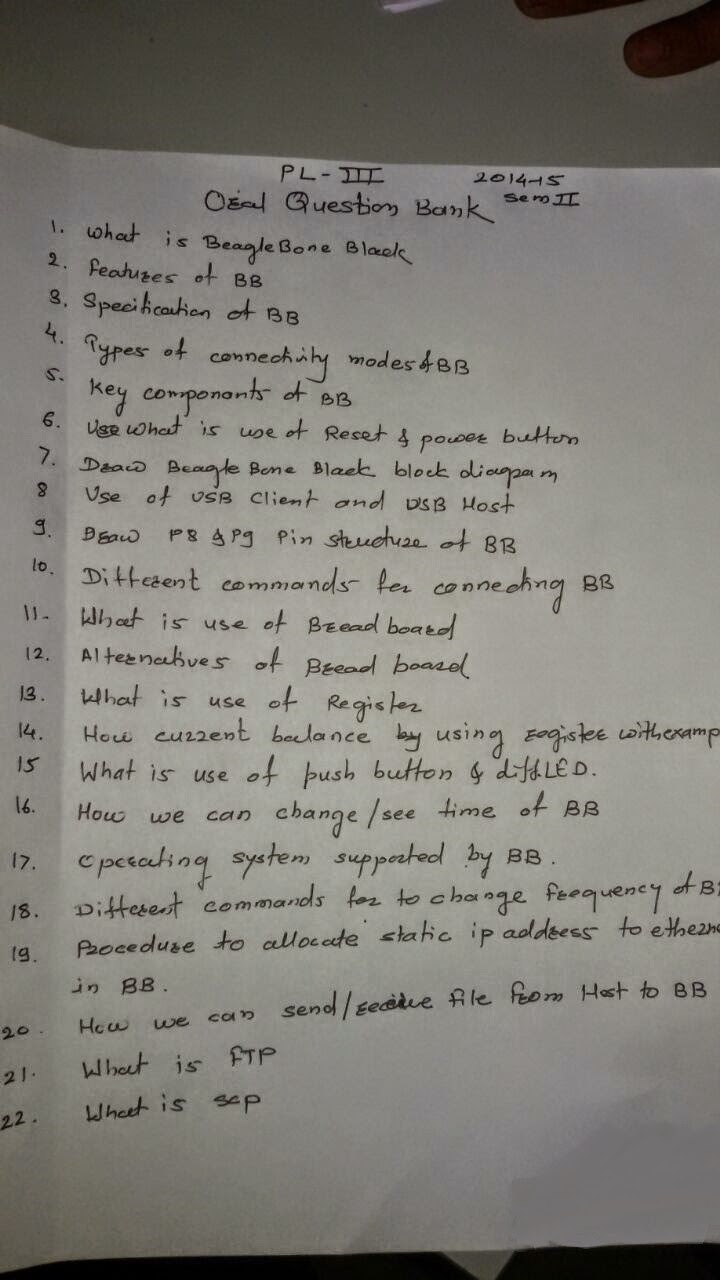 PL-III 2014-15
Oral Question Bank Sem II
1. What is BeagleBone Black
2. Features of BB
3. Specification of BB
4. Types of connectivity modes of BB
5. Key componants of BB
6. Use What is use of Reset & power button
7. Draw Beagle Bone Black block diagram
8 Use of USB Client and USB Host
9. Draw P8 & P9 Pin structure of BB
10. Different commands for connecting BB
11- What is use of Bread board
12. Alternatives of Bread board
13. What is use of Register
14. How current balance by using register with examp
15 What is use of push button & diff. LED.
16. How we can change/see time of BB
17. Operating system supported by BB.
18. Different commands for to change frequency of B
19. Procedure to allocate static ip address to ethern
in BB.
20. How we can send/receive file from Host to BB
21. What is FTP
22. What is scp